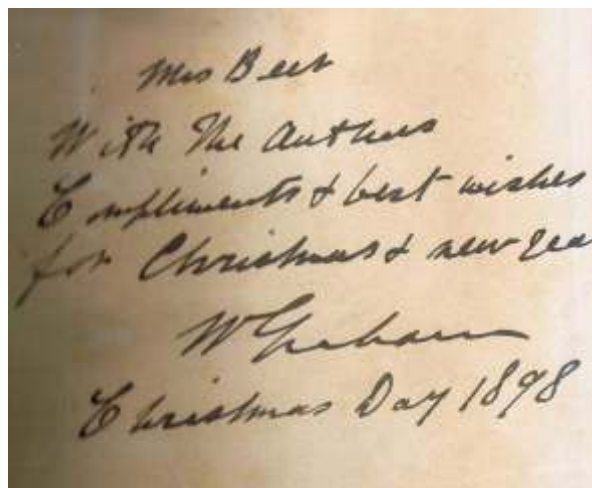 Mrs Beet
With The Authors
Compliments & best wishes
for Christmas & new yea
W Graham
Christmas Day 1898